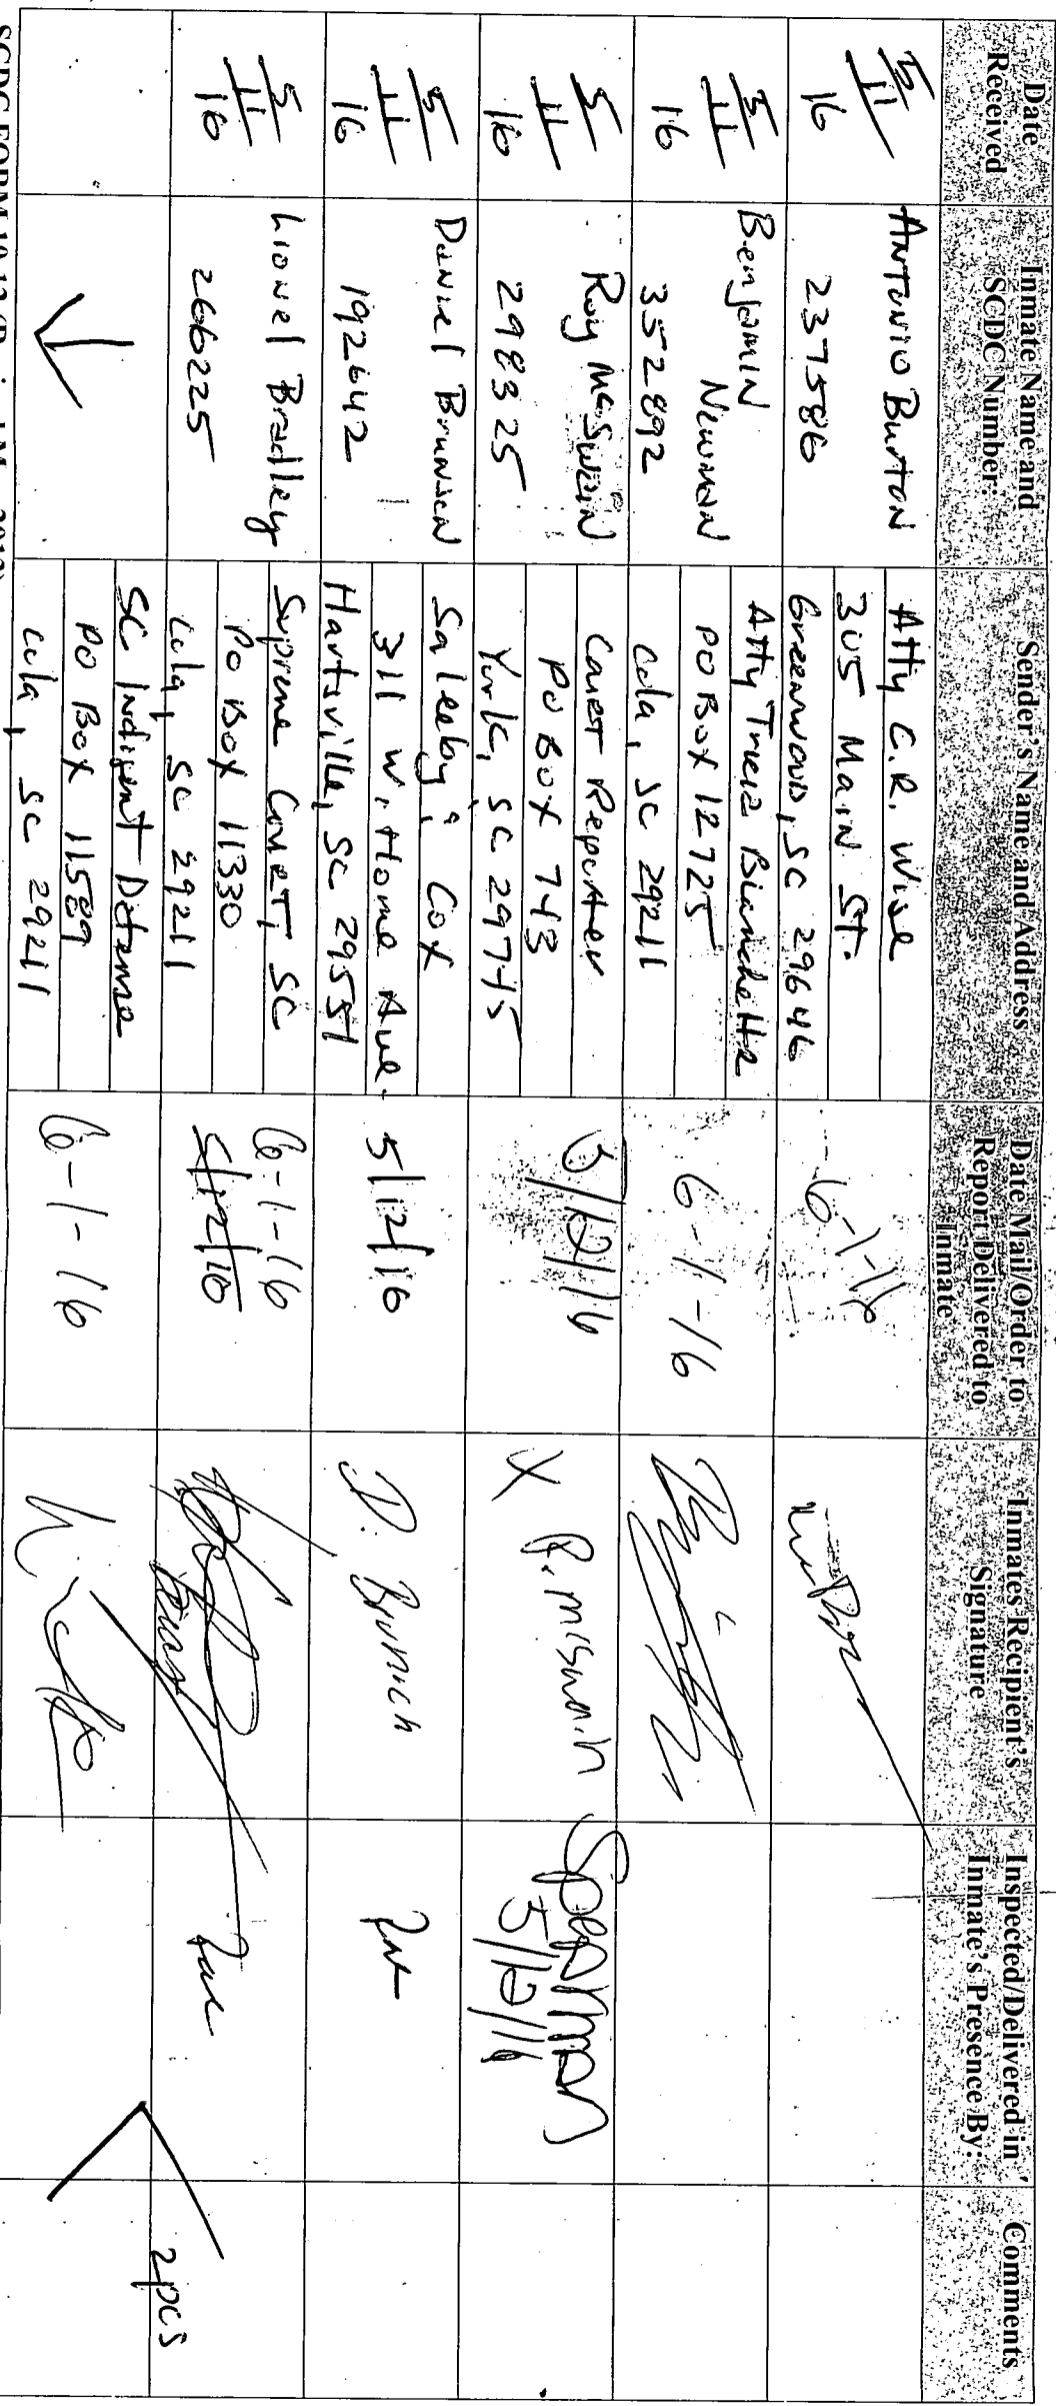 Date Received
Inmate Name and SCDC Number:
Sender's Name and Address
Date Mail/Order to Report Delivered to Inmate
Inmates Recipient's Signature
Inspected/Delivered in Inmate's Presence By:
Comments
5/11
16
Antonio Burton
237586
Atty C.R. Wise
305 Main St.
Greenwood, SC 29646
6-1-16
5/11
16
Benjamin
Newman
352892
Atty
PO Box 12725
Cola, SC 29211
6-1-16
5/11
16
Roy McSwain
298325
Court Reporter
PO Box 743
York, SC 29745
5/12/16
X R. McSwain
Spearman
5/12/16
5/11
16
Daniel Brunson
192642
Saleeby & Cox
311 W. Home Ave.
Hartsville, SC 29551
5/12/16
5/11
16
Lionel Bradley
266225
Supreme Court, SC
PO Box 11330
Cola, SC 29211
6-1-16
5/12/16
SC Indigent Defense
PO Box 11589
Cola, SC 29211
6-1-16
2pcs